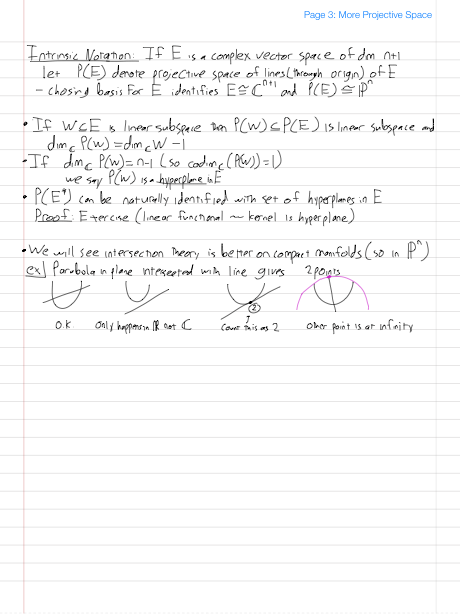 Page 3: More Projective Space
Intrinsic Notation: If E is a complex vector space of dim n+1
let P(E) denote projective space of lines (through origin) of E
- chosing basis for E identifies E≅ℂⁿ⁺¹ and P(E)≅ℙⁿ
• If W⊆E is linear subspace then P(W)⊆P(E) is linear subspace and
dim_ℂ P(W) = dim_ℂ W - 1
• If dim_ℂ P(W) = n-1 (so codim_ℂ(P(W))=1)
we say P(W) is a hyperplane in E
• P(E*) can be naturally identified with set of hyperplanes in E
Proof: Exercise (linear functional ~ kernel is hyperplane)
• We will see intersection theory is better on compact manifolds (so in ℙⁿ)
ex] Parabola in plane intersected with line gives 2 points
②
O.K. Only happens in ℝ not ℂ Count this as 2 other point is at infinity